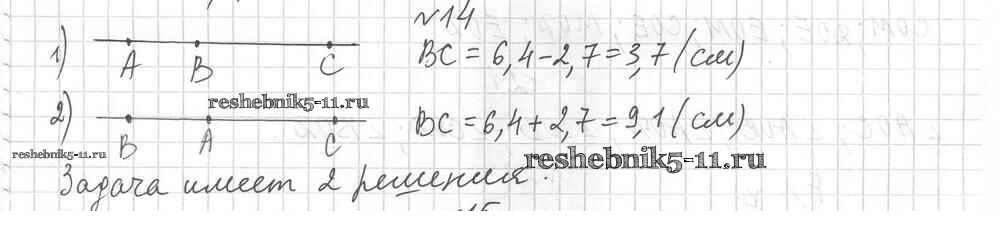 №14
1) A B C BC = 6,4 - 2,7 = 3,7 (см)
reshebnik5-11.ru
2) B A C BC = 6,4 + 2,7 = 9,1 (см)
reshebnik5-11.ru
reshebnik5-11.ru
Задача имеет 2 решения.